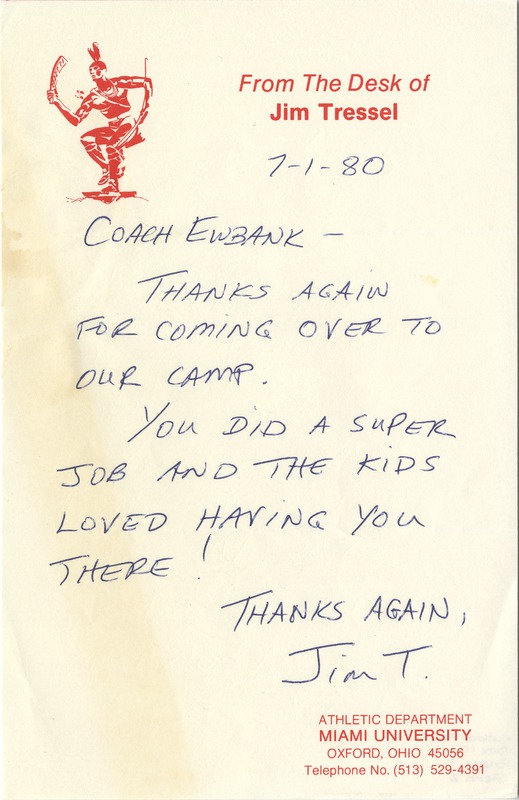 From The Desk of
Jim Tressel
7-1-80
COACH EWBANK —
THANKS AGAIN
FOR COMING OVER TO
OUR CAMP.
YOU DID A SUPER
JOB AND THE KIDS
LOVED HAVING YOU
THERE!
THANKS AGAIN,
Jim T.
ATHLETIC DEPARTMENT
MIAMI UNIVERSITY
OXFORD, OHIO 45056
Telephone No. (513) 529-4391